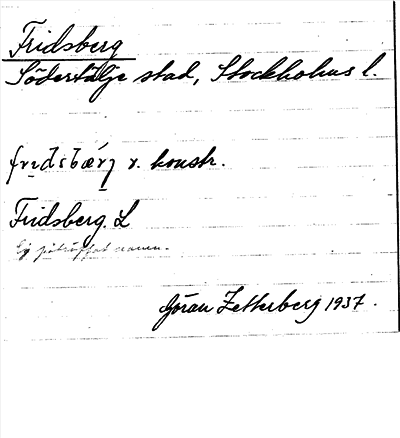 Fridsberg
Södertälje stad, Stockholms l.
frıdsbærj v. konstr.
Fridsberg. L
Ej påträffat namn.
Göran Zetterberg 1937.